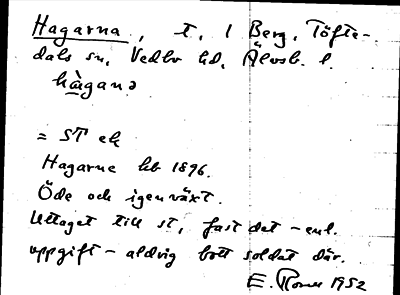 Hagarna, t. 1 Berg, Töfte-
dals sn, Vedbo hd, Älvsb. l.
hàganə
= ST ek
Hagarne hb 1896.
Öde och igenväxt.
Uttaget till st, fast det – enl.
uppgift – aldrig bott soldat där.
E. 1952